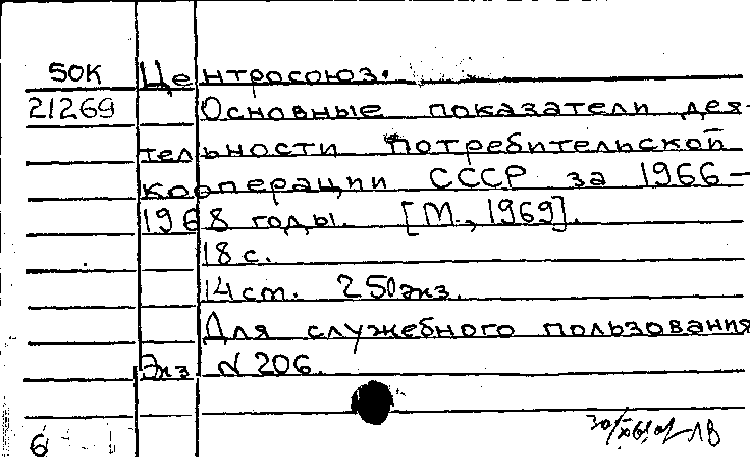 50К Центросоюз.
21269 Основные показатели дея-
тельности потребительской
кооперации СССР за 1966–
1968 годы. [М., 1969].
18 с.
14 ст. 250 экз.
Для служебного пользования
Экз N 206.
6